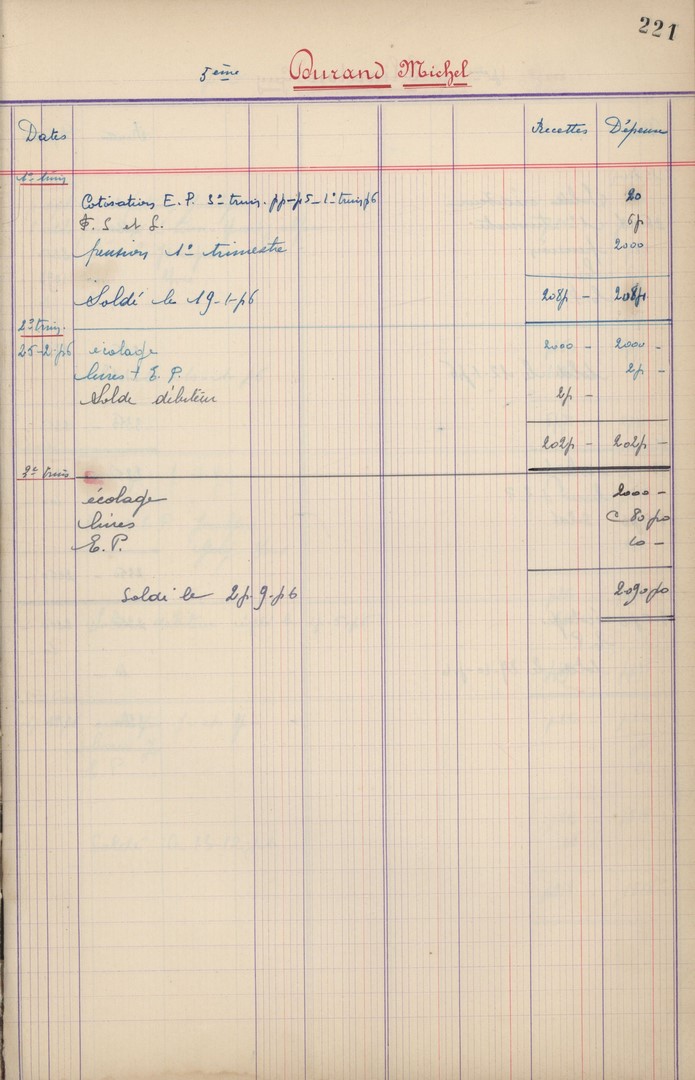 221
5ème Durand Michel
Dates Recettes Dépense
1e trim
Cotisation E.P. 3e trim. 1e trim 56 20
F. S et S. 65
pension 1e trimestre 2000
Soldé le 19-1-56 2085 - 2085
2e trim.
25-2-56 écolage 2000 - 2000 -
livres + E.P. 25 -
Solde débiteur 25 -
2025 - 2025 -
3e trim
écolage 2000 -
livres 80 50
E.P. 10 -
Soldé le 25.9.56 2090 50